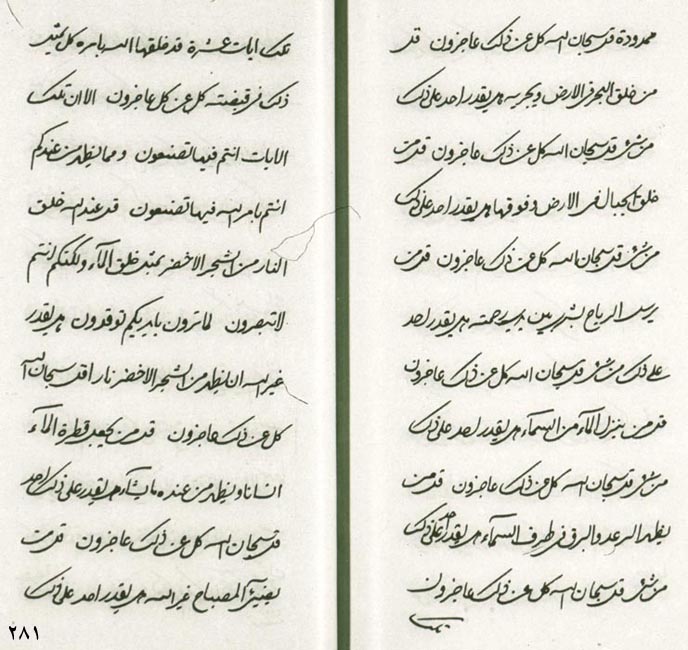 ممدودة قد سبحان الله كل عن ذلك عاجزون قل
من خلق البحر في الارض ويجريه هل يقدر احد على ذلك
من شئ قل سبحان الله كل عن ذلك عاجزون قل من
خلق الجبال في الارض وفوقها هل يقدر احد على ذلك
من شئ قل سبحان الله كل عن ذلك عاجزون قل من
يرسل الرياح بشرى بين يدي رحمته هل يقدر احد
على ذلك من شئ قل سبحان الله كل عن ذلك عاجزون
قل من ينزل الماء من السماء هل يقدر احد على ذلك
من شئ قل سبحان الله كل عن ذلك عاجزون قل من
يظهر الرعد والبرق في طرف السماء هل يقدر احد على ذلك
من شئ قل سبحان الله كل عن ذلك عاجزون
تلك
تلك ايات عشرة قد خلقها الله بامره كل بمثل
ذلك في قبضته كل عن كل عاجزون الا ان تلك
الايات انتم فيها تصنعون ومما يظهر من عندكم
انتم بامر الله فيها تصنعون قل عند الله خلق
النار من الشجر الاخضر بمثل خلق الماء ولكنكم انتم
لا تبصرون لما ترون بايديكم توقدون هل يقدر
غير الله ان يظهر من الشجر الاخضر نارا قل سبحان الله
كل عن ذلك عاجزون قل من يجعل قطرة الماء
انسانا ويظهر من عنده ما يشاء هل يقدر على ذلك احد
قل سبحان الله كل عن ذلك عاجزون قل من
يضيئ المصباح غير الله هل يقدر احد على ذلك
٢٨١